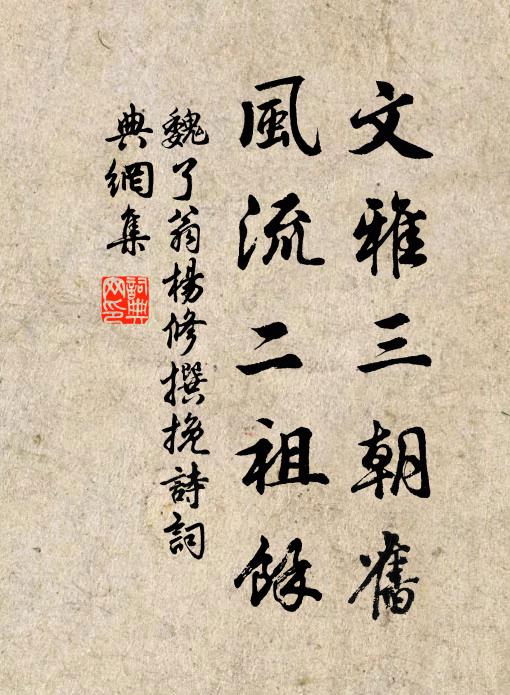 文雅三朝舊
風流二祖餘
魏了翁楊修撰挽詩詞
典網集
詞典網印